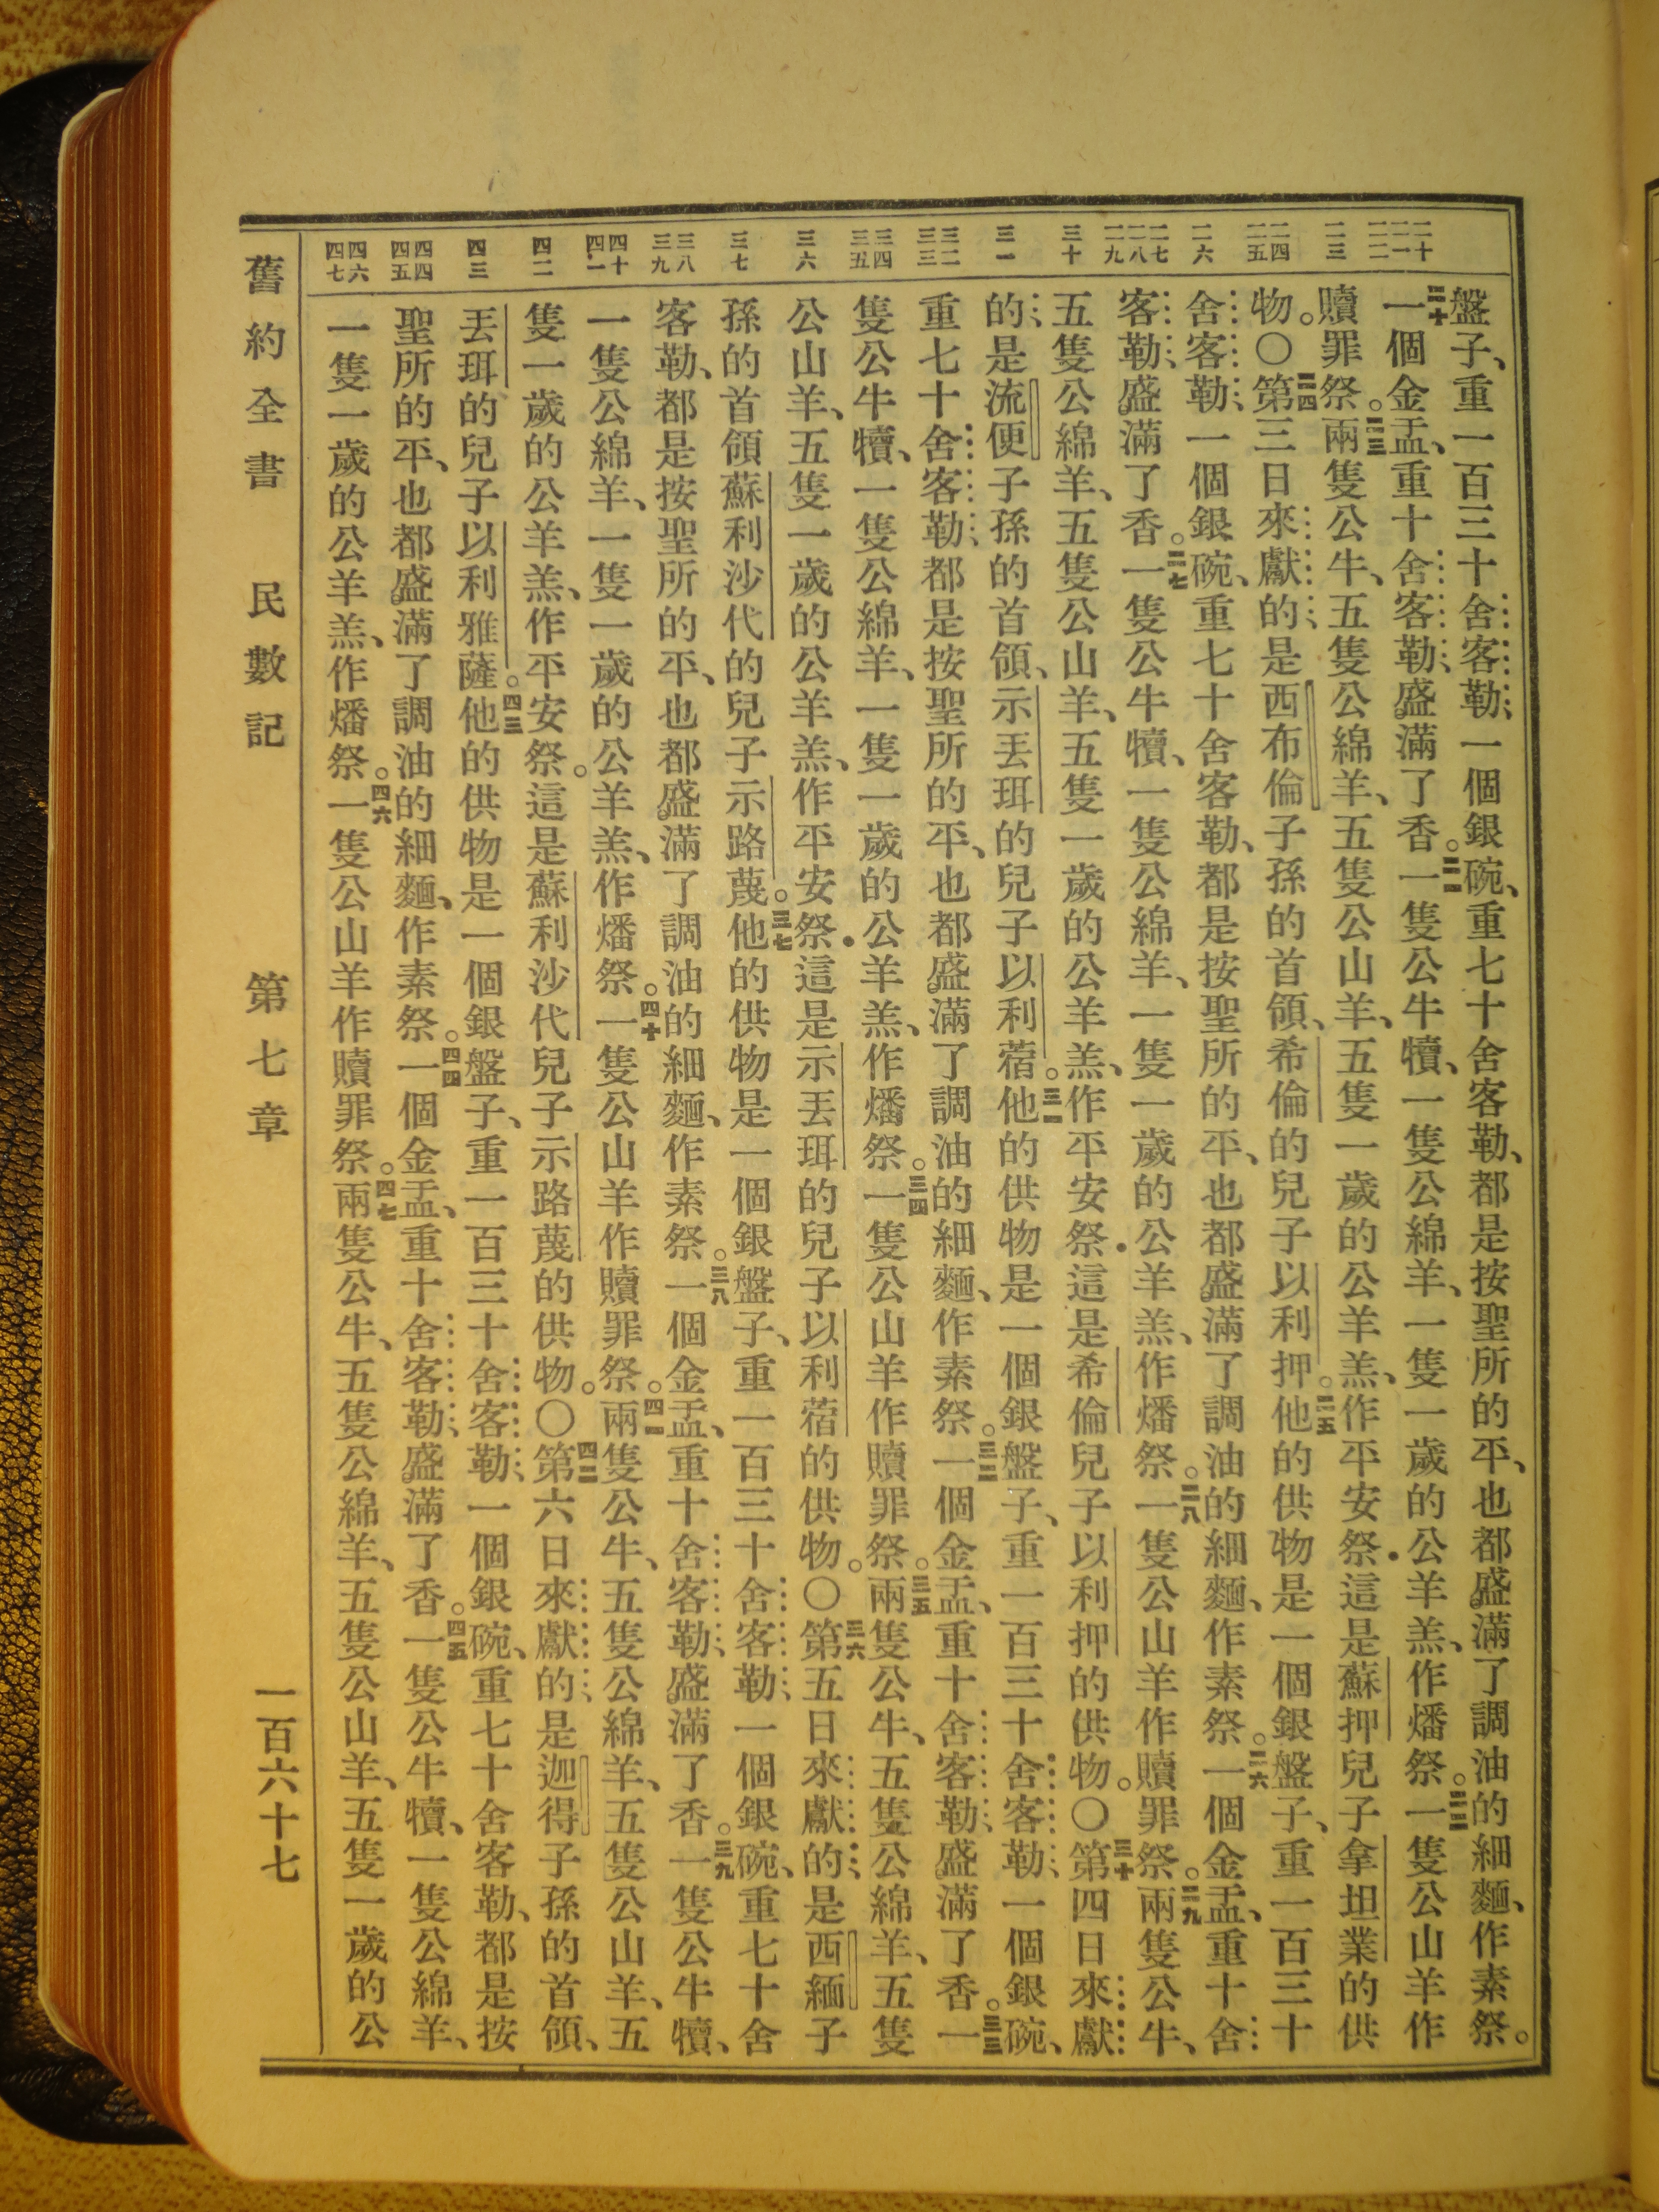 二十
二一
二二
二三
二四
二五
二六
二七
二八
二九
三十
三一
三二
三三
三四
三五
三六
三七
三八
三九
四十
四一
四二
四三
四四
四五
四六
四七
盤子、重一百三十舍客勒、一個銀碗、重七十舍客勒、都是按聖所的平、也都盛滿了調油的細麵、作素祭。
二十一個金盂、重十舍客勒、盛滿了香。二一一隻公牛犢、一隻公綿羊、一隻一歲的公羊羔、作燔祭。二二一隻公山羊作
贖罪祭。二三兩隻公牛、五隻公綿羊、五隻公山羊、五隻一歲的公羊羔、作平安祭．這是蘇押兒子拿坦業的供
物。〇二四第三日來獻的是西布倫子孫的首領、希倫的兒子以利押。二五他的供物是一個銀盤子、重一百三十
舍客勒、一個銀碗、重七十舍客勒、都是按聖所的平、也都盛滿了調油的細麵、作素祭。二六一個金盂、重十舍
客勒、盛滿了香。二七一隻公牛犢、一隻公綿羊、一隻一歲的公羊羔、作燔祭。二八一隻公山羊作贖罪祭。二九兩隻公牛、
五隻公綿羊、五隻公山羊、五隻一歲的公羊羔、作平安祭．這是希倫兒子以利押的供物。〇三十第四日來獻
的、是流便子孫的首領、示丟珥的兒子以利蓿。三一他的供物是一個銀盤子、重一百三十舍客勒、一個銀碗、
重七十舍客勒、都是按聖所的平、也都盛滿了調油的細麵、作素祭。三二一個金盂、重十舍客勒、盛滿了香。三三一
隻公牛犢、一隻公綿羊、一隻一歲的公羊羔、作燔祭。三四一隻公山羊作贖罪祭。三五兩隻公牛、五隻公綿羊、五隻
公山羊、五隻一歲的公羊羔、作平安祭．這是示丟珥的兒子以利蓿的供物。〇三六第五日來獻的、是西緬子
孫的首領蘇利沙代的兒子示路蔑。三七他的供物是一個銀盤子、重一百三十舍客勒、一個銀碗、重七十舍
客勒、都是按聖所的平、也都盛滿了調油的細麵、作素祭。三八一個金盂、重十舍客勒、盛滿了香。三九一隻公牛犢、
一隻公綿羊、一隻一歲的公羊羔、作燔祭。四十一隻公山羊作贖罪祭。四一兩隻公牛、五隻公綿羊、五隻公山羊、五
隻一歲的公羊羔、作平安祭。這是蘇利沙代兒子示路蔑的供物。〇四二第六日來獻的、是迦得子孫的首領、
丟珥的兒子以利雅薩。四三他的供物是一個銀盤子、重一百三十舍客勒、一個銀碗、重七十舍客勒、都是按
聖所的平、也都盛滿了調油的細麵、作素祭。四四一個金盂、重十舍客勒、盛滿了香。四五一隻公牛犢、一隻公綿羊、
一隻一歲的公羊羔、作燔祭。四六一隻公山羊作贖罪祭。四七兩隻公牛、五隻公綿羊、五隻公山羊、五隻一歲的公
舊約全書 民數記 第七章 一百六十七